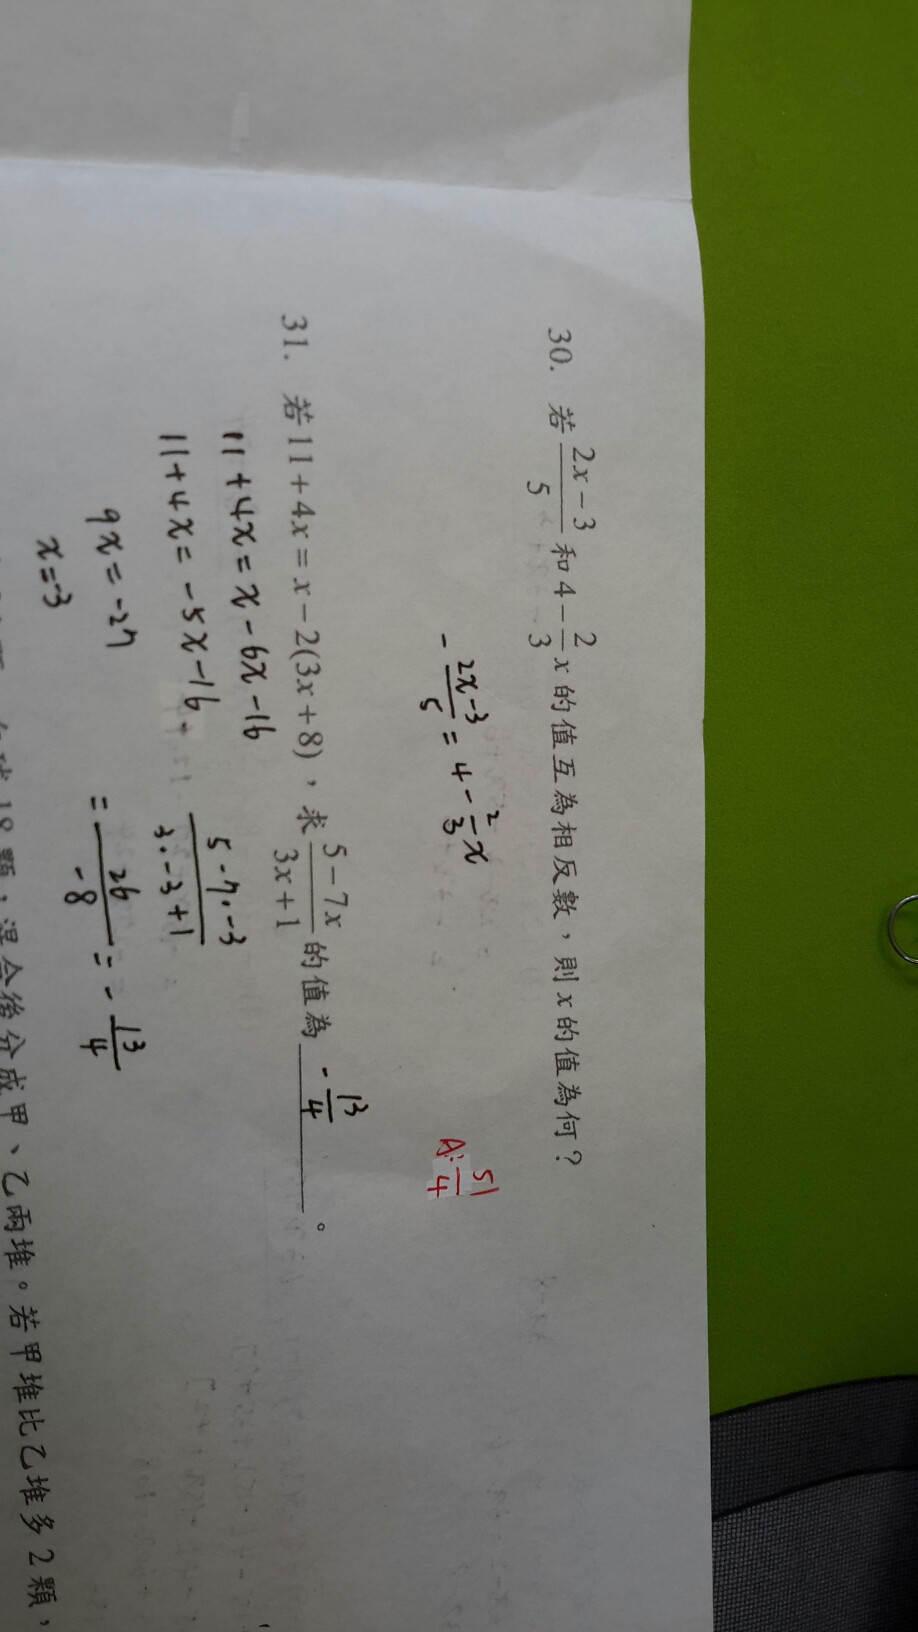 30. 若 (2x-3)/5 和 4 - 2/3 x 的值互為相反數，則 x 的值為何？
- (2x-3)/5 = 4 - 2/3 x
A: 51/4
31. 若 11+4x=x-2(3x+8)，求 (5-7x)/(3x+1) 的值為 - 13/4 。
11+4x=x-6x-16
11+4x=-5x-16
9x=-27
x=-3
(5-7·-3)/(3·-3+1)
= 26/-8 = - 13/4
18顆，混合後分成甲、乙兩堆。若甲堆比乙堆多2顆，